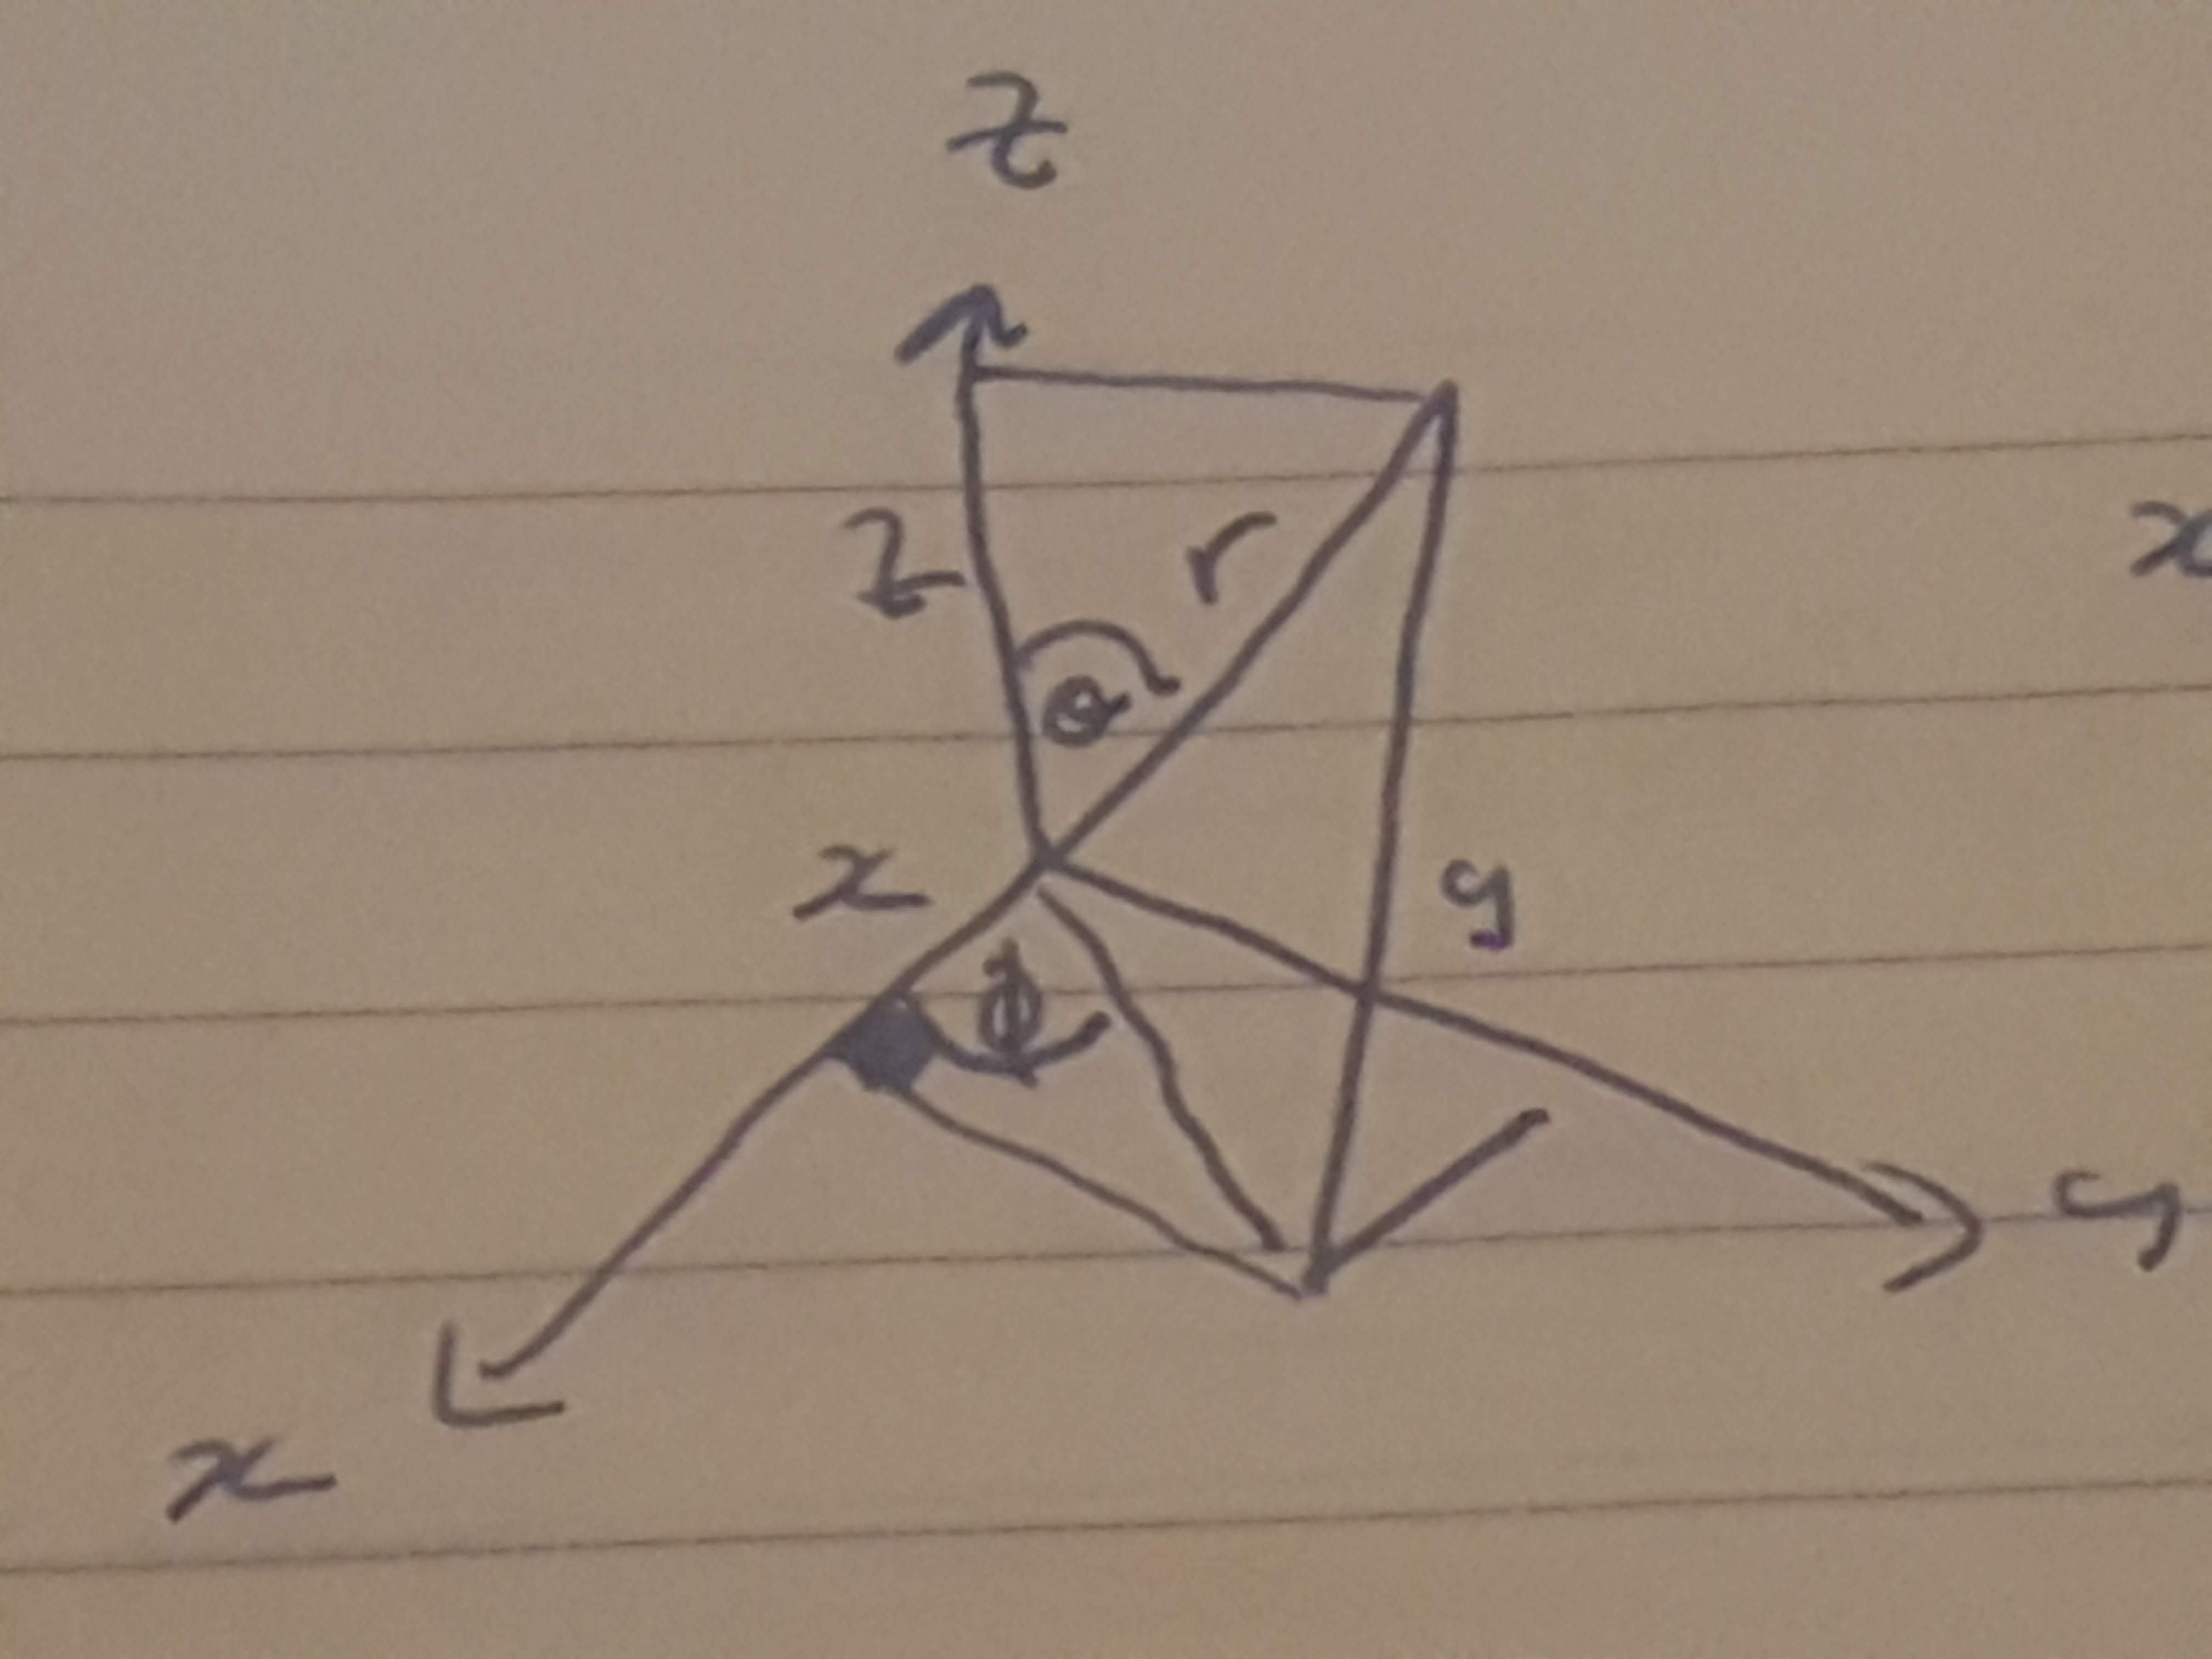 z
z r
x
θ
x y
ϕ
y
x